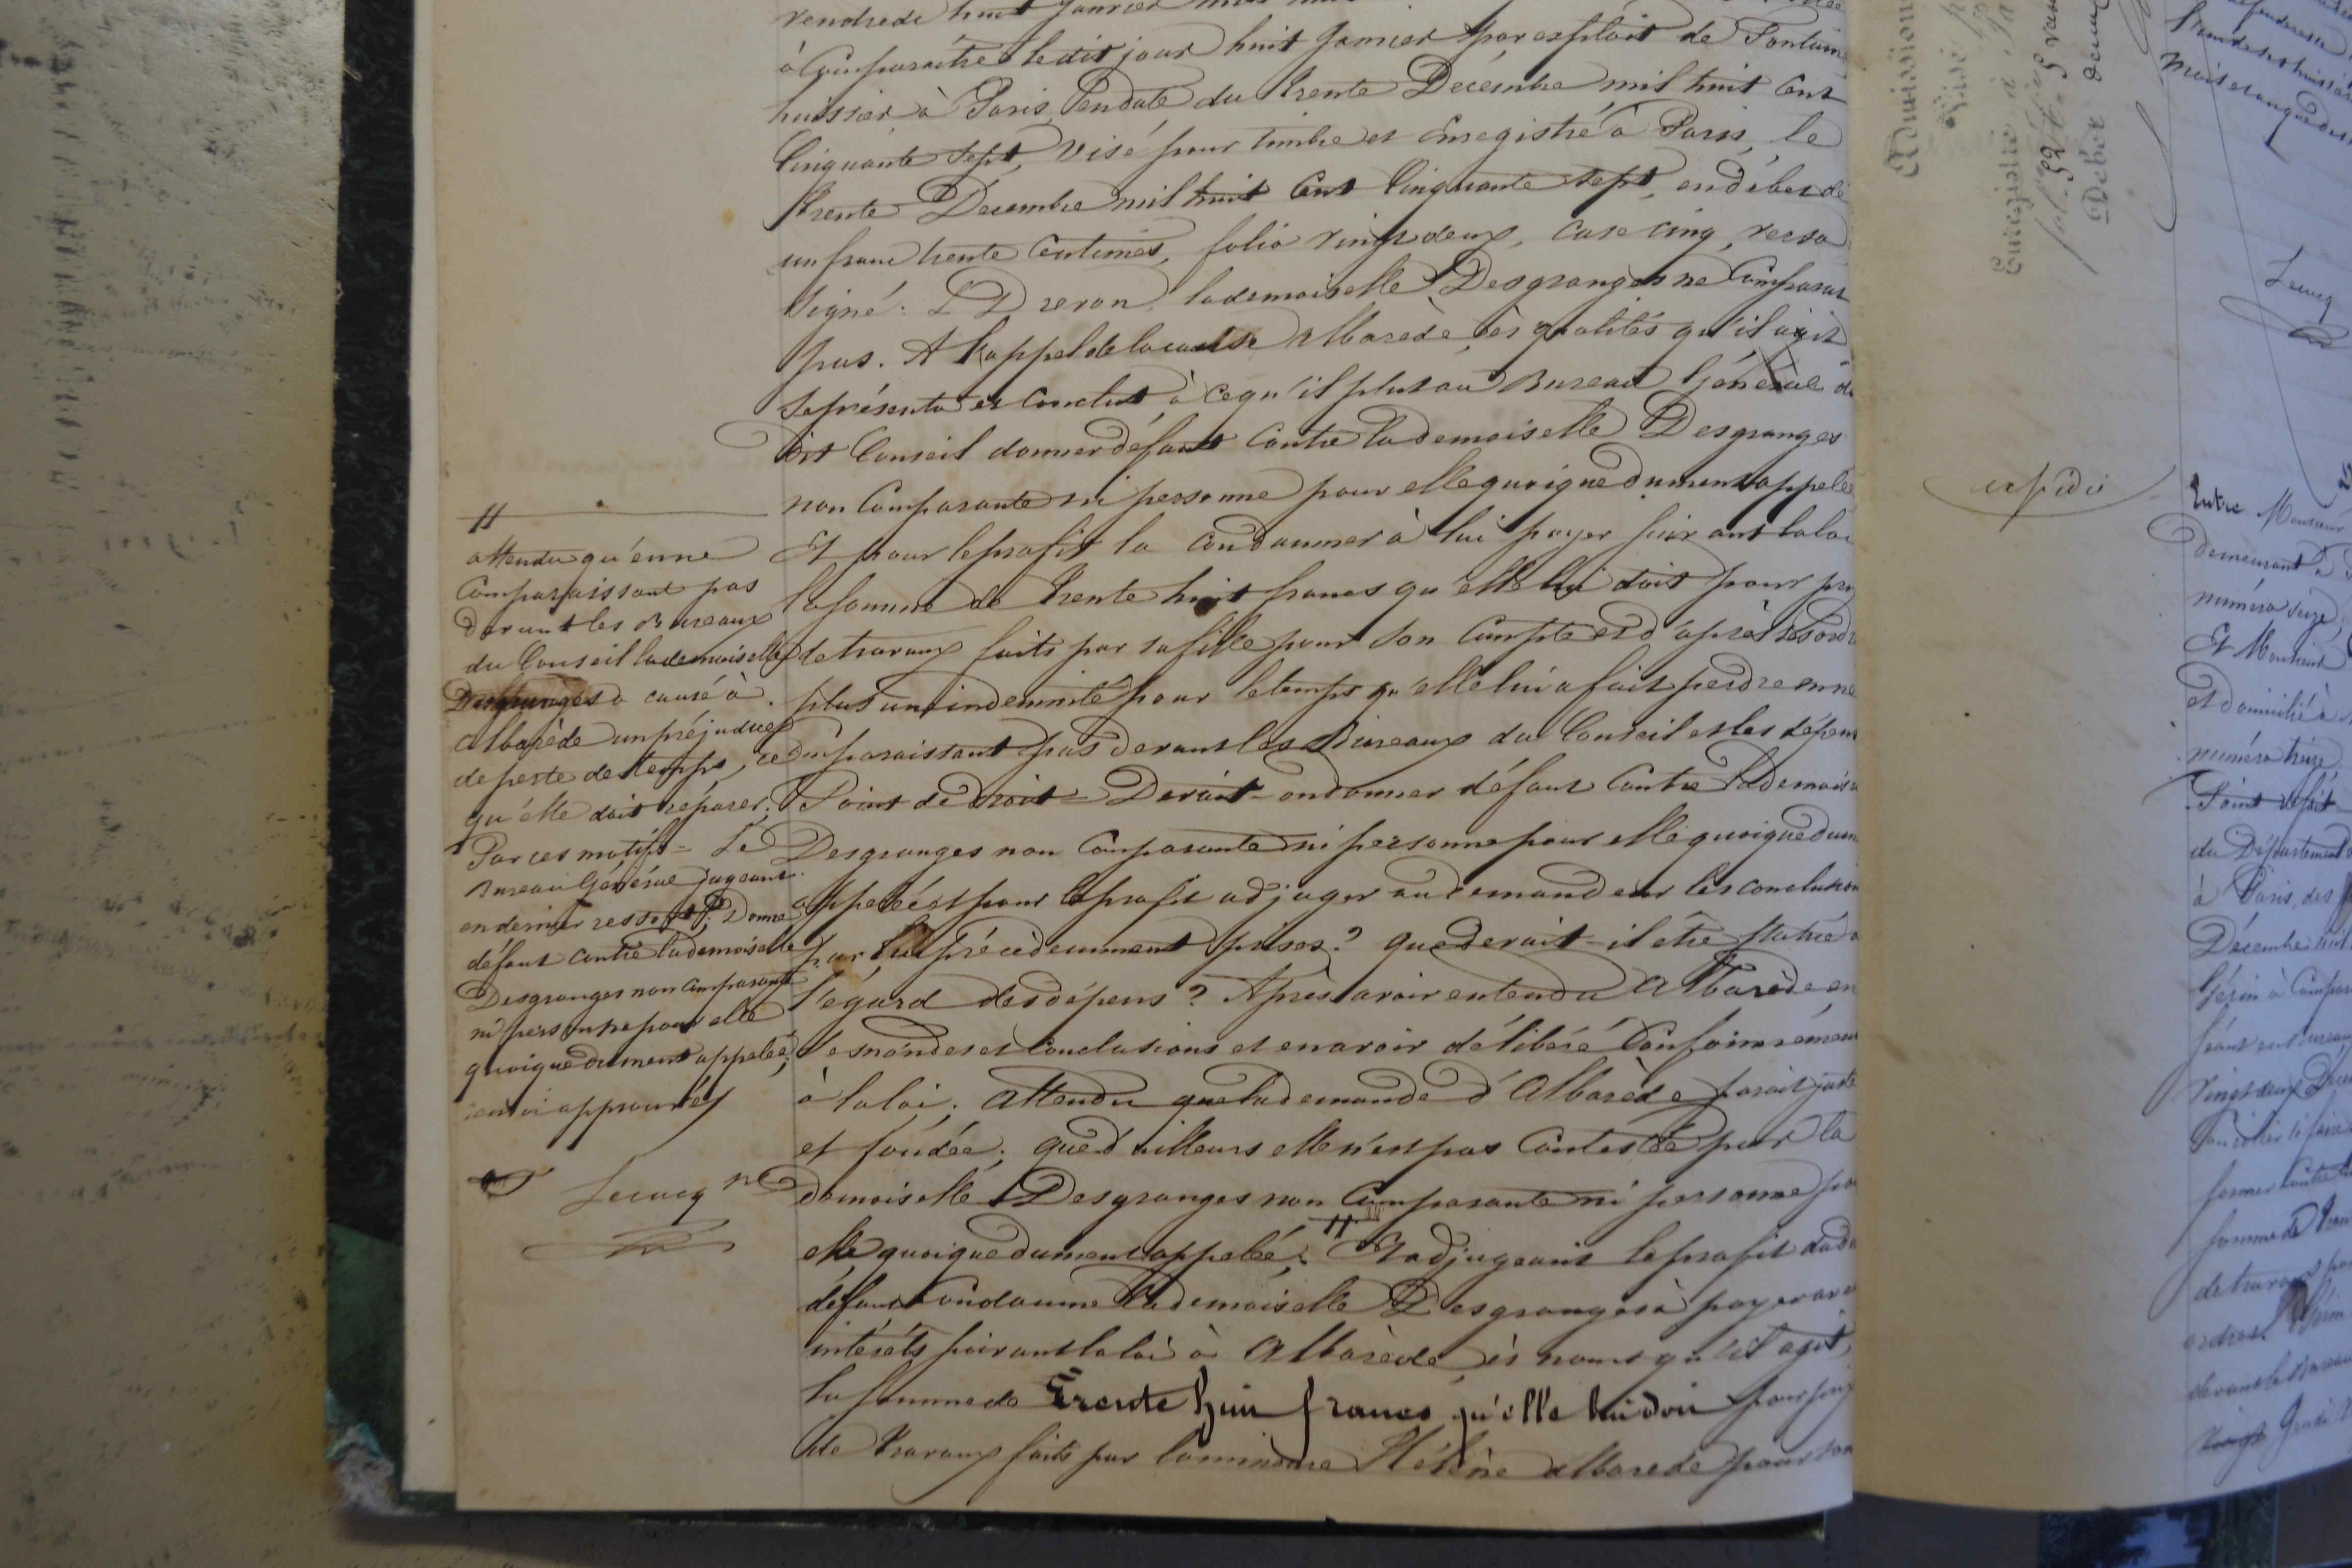 vendredi huit Janvier
à Comparaître le dit jour huit Janvier par exploit de Fontaine
huissier à Paris, en date du trente Décembre mil huit cent
Cinquante sept, visé pour timbre et enregistré à Paris, le
trente Décembre mil huit cent Cinquante sept, en débet de
un franc trente centimes, folio vingt deux, case cinq, verso
signé: Dreron, la demoiselle Desgranges ne Comparut
pas. A l'appel de la cause Albarède ès qualités qu'il agit
se présenta et Conclut à ce qu'il plut au Bureau Général du
dit Conseil donner défaut Contre la demoiselle Desgranges
non Comparante ni personne pour elle quoique dument appelée
Et pour le profit la Condamner à lui payer suivant la loi
la somme de trente huit francs qu'elle lui doit pour prix
de travaux faits par sa fille pour son Compte et d'après ses ordr
plus un indemnité pour le temps qu'elle lui a fait perdre en ne
Comparaissant pas devant les Bureaux du Conseil et les dépens
Point de droit = Devait-on donner défaut Contre la Demoise
Desgranges non Comparante ni personne pour elle quoique dum
appelée et pour le profit adjuger au demandeur les conclusion
par lui précédemment prises? que devait-il être statué à
l'égard des dépens? Après avoir entendu Albarède en
ses demandes et Conclusions et en avoir délibéré Conformément
à la loi; Attendu que la demande d'Albarède parait juste
et fondée; que d'ailleurs elle n'est pas Contestée par la
demoiselle Desgranges non Comparante ni personne po
elle quoique dument appelée; # Et adjugeant le profit dudi
défaut Condamne la demoiselle Desgranges à payer ave
intérêts suivant la loi à Albarède ès noms qu'il agit,
la somme de trente huit francs qu'elle lui doit pour prix
de travaux faits par la mineure Hélène Albarède pour son
#
attendu qu'en ne
Comparaissant pas
devant les Bureaux
du Conseil la demoiselle
Desgranges a causé à
Albarède un préjudice
de perte de temps, ce
qu'elle doit réparer;
Par ces motifs = Le
Bureau Général jugeant
en dernier ressort; Donne
défaut contre la demoiselle
Desgranges non Comparante
ni personne pour elle
quoique dument appelée;
renvoi approuvé
Lecucq
Enregistré à
Débet
Lecucq
expédié
Entre Monsieur
demeurant à
numéro seize,
Et Monsieur
et domicilié à
numéro treize.
Point de fait
du Département
à Paris, des
Décembre mil
à Compar
séant en Bureau
vingt deux Déce
former contre
somme de tren
de travaux pa
ordres
devant le Bureau
Jeudi